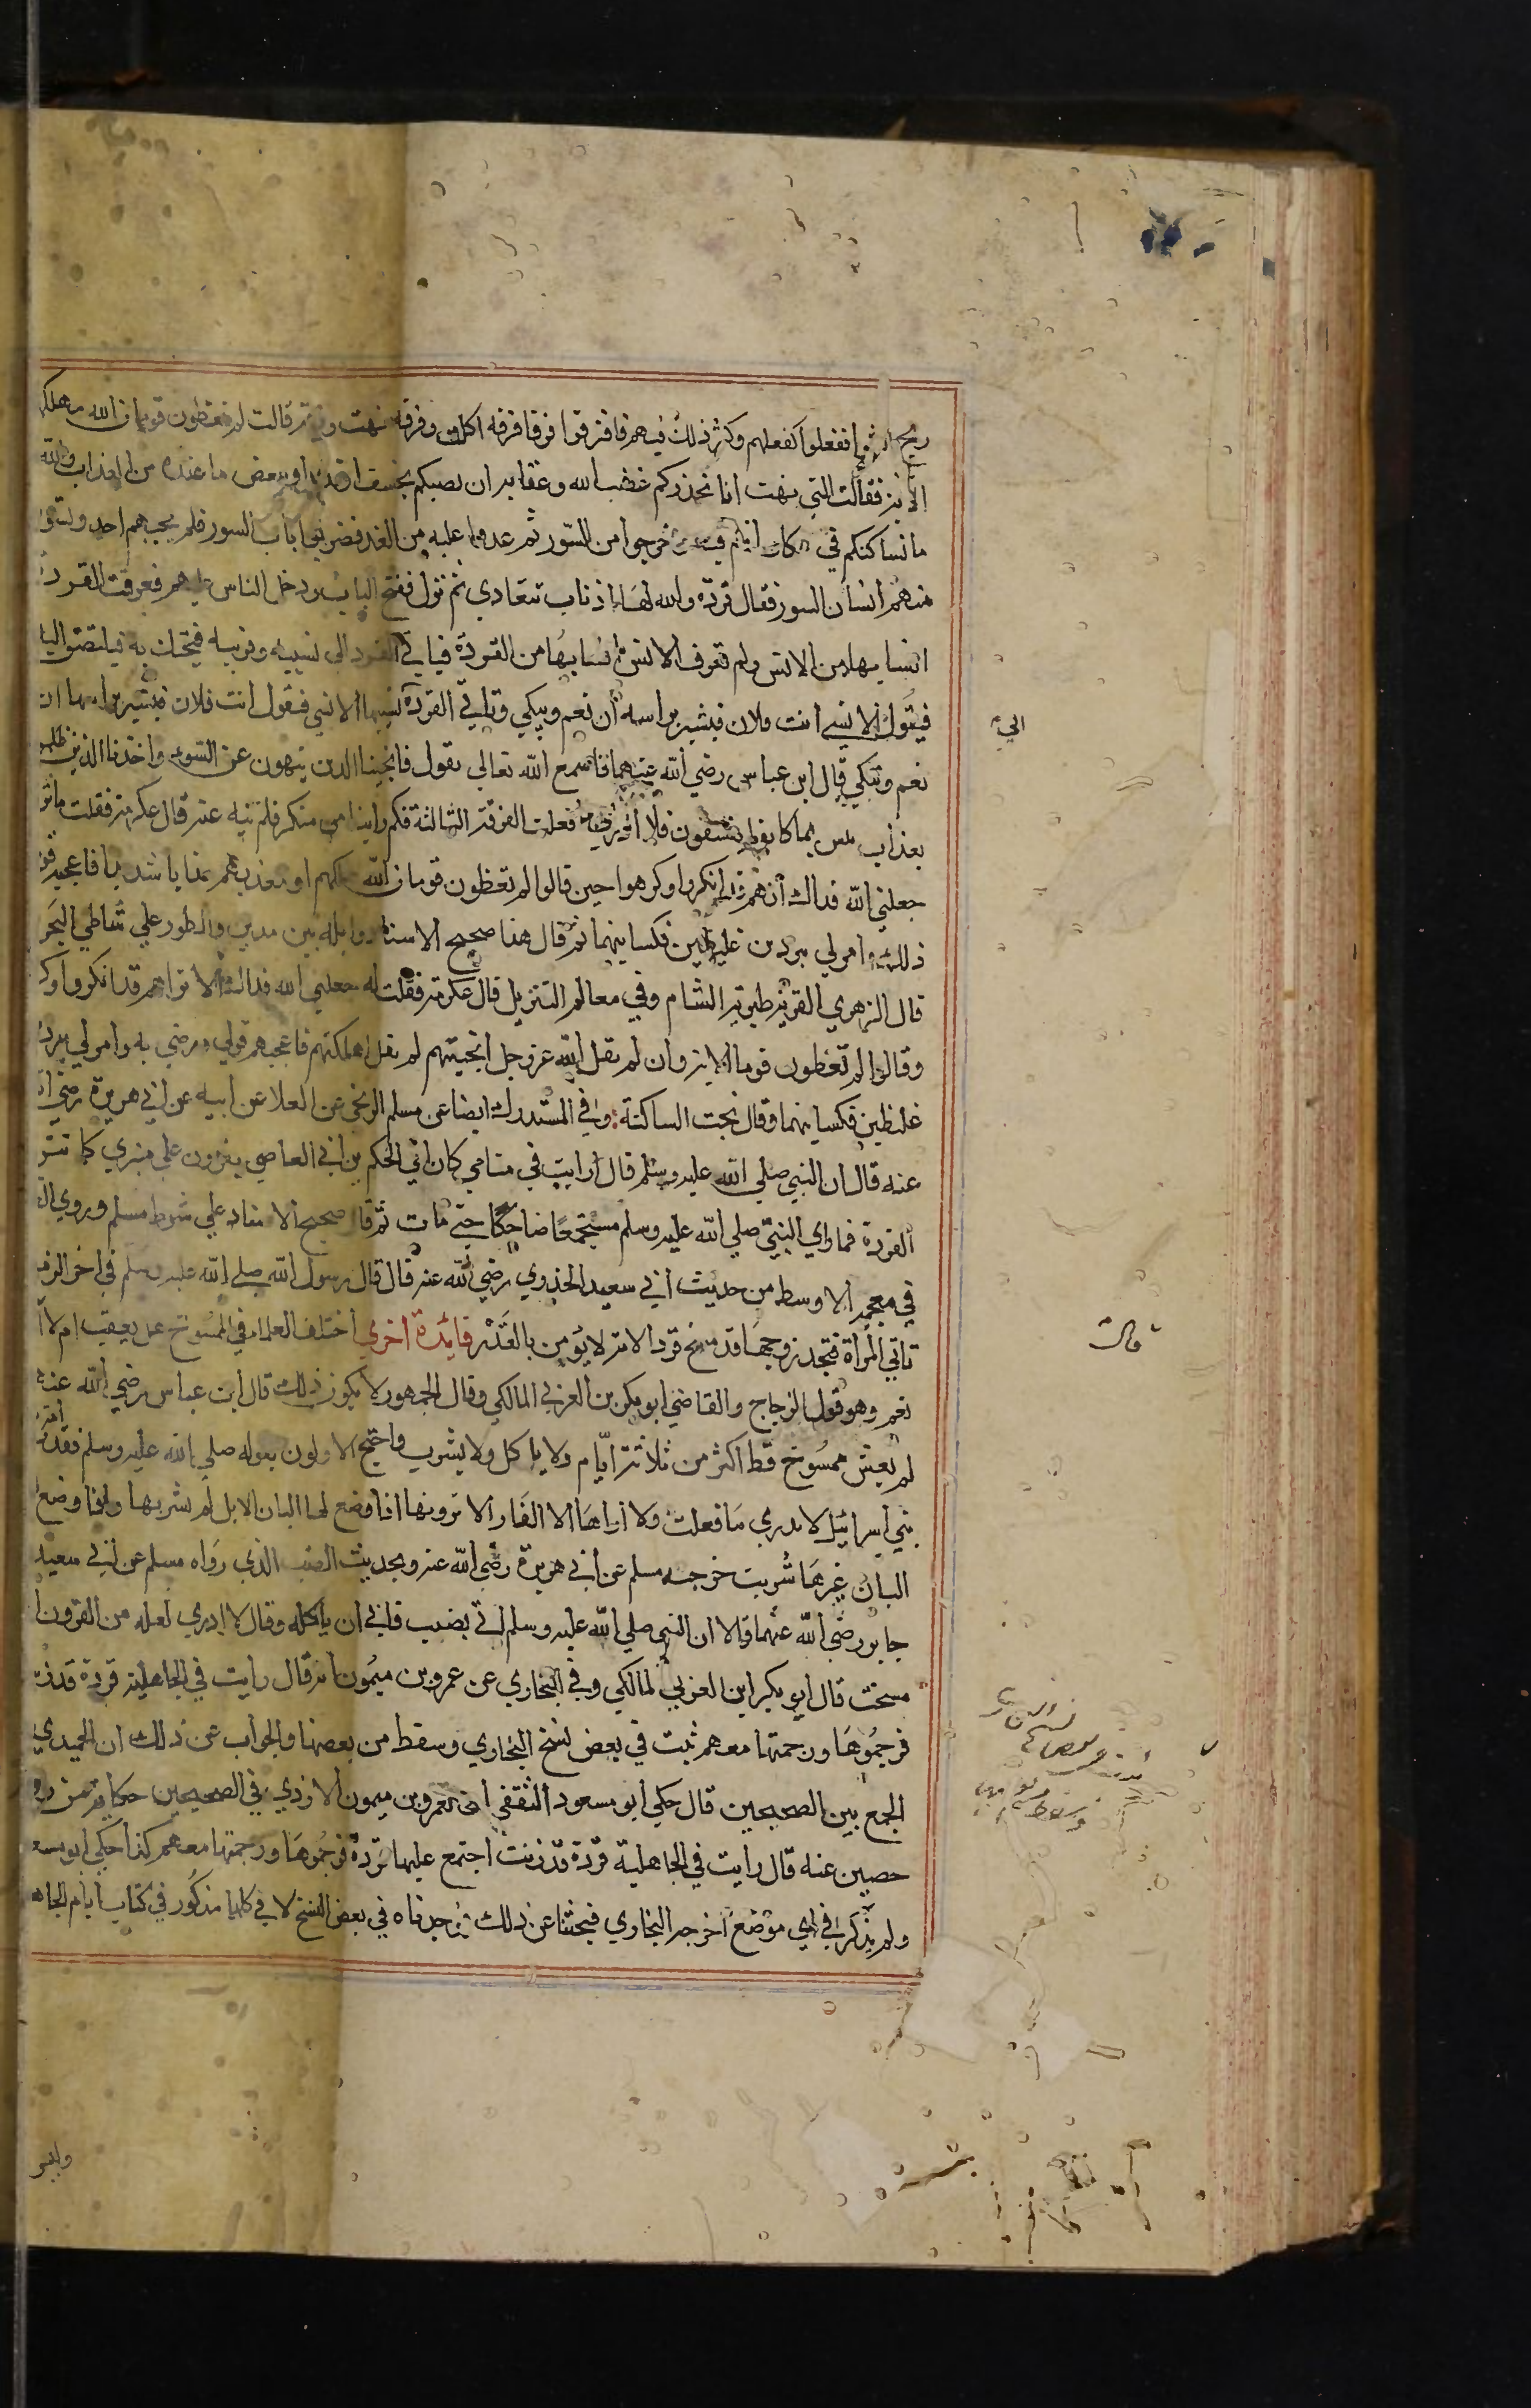 ريح الشوا ففعلوا كفعلهم وكثر ذلك فيهم فافترقوا فرقا فرقة اكلت وفرقة نهت وفرقة قالت لم تعظون قوما الله مهلكهم
الآية فقالت التي نهت انا نحذركم غضب الله وعقابه ان يصيبكم بخسف او قذف او ببعض ما عنده من العذاب والله
ما نساكنكم في مكان انتم فيه وخرجوا من السور ثم عدوا عليه من الغد فضربوا باب السور فلم يجبهم احد فتسور
منهم انسان السور فقال قردة والله لها اذناب تتعادى ثم نزل ففتح الباب ودخل الناس عليهم فعرفت القردة
انسابها من الانس ولم تعرف الانس انسابها من القردة فياتي القرد الى نسيبه وقريبه فيحتك به فيلتصق اليه
فيقول الانسي انت فلان فيشير براسه أن نعم ويبكي وتاتي القردة نسيبها الانسي فيقول انت فلان فتشير براسها ان
نعم وتبكي قال ابن عباس رضي الله عنهما فاسمع الله تعالى يقول فانجينا الذين ينهون عن السوء واخذنا الذين ظلموا
بعذاب بئس بما كانوا يفسقون فلا ادري ما فعلت الفرقة الثالثة فكم راينا من منكر فلم ننه عنه قال عكرمة فقلت ما ترى
جعلني الله فداك انهم قد انكروا وكرهوا حين قالوا لم تعظون قوما الله مهلكهم او معذبهم عذابا شديدا فاعجبه قولي
ذلك وامر لي ببردين غليظين فكسانيهما ثم قال هذا صحيح الاسناد وايلة بين مدين والطور على شاطي البحر
قال الزهري القرية طبرية الشام وفي معالم التنزيل قال عكرمة فقلت له جعلني الله فداك الا تراهم قد انكروا وكرهوا
وقالوا لم تعظون قوما الآية وان لم يقل الله عز وجل انجيتهم لم يقل اهلكتهم فاعجبه قولي ورضي به وامر لي ببردين
غليظين فكسانيهما وقال نجت الساكتة وفي المستدرك ايضا عن مسلم الزنجي عن العلا عن ابيه عن ابي هريرة رضي الله
عنه قال ان النبي صلى الله عليه وسلم قال ارايت في منامي كان ابي الحكم بن ابي العاصي ينزون على منبري كما تنزو
القردة فما راي النبي صلى الله عليه وسلم مستجمعا ضاحكا حتى مات ثم قال صحيح الاسناد على شرط مسلم وروي
في معجمه الاوسط من حديث ابي سعيد الخدري رضي الله عنه قال قال رسول الله صلى الله عليه وسلم في اخر الزمان
تاتي المرأة فتجد زوجها قد مسخ قردا لانه لا يؤمن بالقدر فائدة اخرى اختلف العلماء في الممسوخ هل يعقب ام لا
نعم وهو قول الزجاج والقاضي ابو بكر بن العربي المالكي وقال الجمهور لا يكون ذلك قال ابن عباس رضي الله عنه
لم يعش ممسوخ قط اكثر من ثلاثة ايام ولا ياكل ولا يشرب واحتج الاولون بقوله صلى الله عليه وسلم فقدت امة
بني اسرائيل لا يدرى ما فعلت ولا اراها الا الفار الا ترونها اذا وضع لها البان الابل لم تشربها واذا وضع
البان غيرها شربت خرجه مسلم عن ابي هريرة رضي الله عنه وبحديث الضب الذي رواه مسلم عن ابي سعيد
جابر رضي الله عنهما قالا ان النبي صلى الله عليه وسلم اتي بضب فابى ان ياكله وقال لا ادري لعله من القرون
مسخت قال ابو بكر ابن العربي المالكي وفي البخاري عن عمرو بن ميمون انه قال رايت في الجاهلية قردة قد زنت
فرجموها ورجمتها معهم ثبت في بعض نسخ البخاري وسقط من بعضها والجواب عن ذلك ان الحميدي
الجمع بين الصحيحين قال حكى ابو مسعود الثقفي ان لعمرو بن ميمون الازدي في الصحيحين حكاية من رواية
حصين عنه قال رايت في الجاهلية قردة قد زنت اجتمع عليها قردة فرجموها ورجمتها معهم كذا حكى ابو مسعود
ولم يذكر في اي موضع اخرجه البخاري فبحثنا عن ذلك فوجدناه في بعض النسخ لا في كلها مذكور في كتاب ايام الجاهلية
قالت